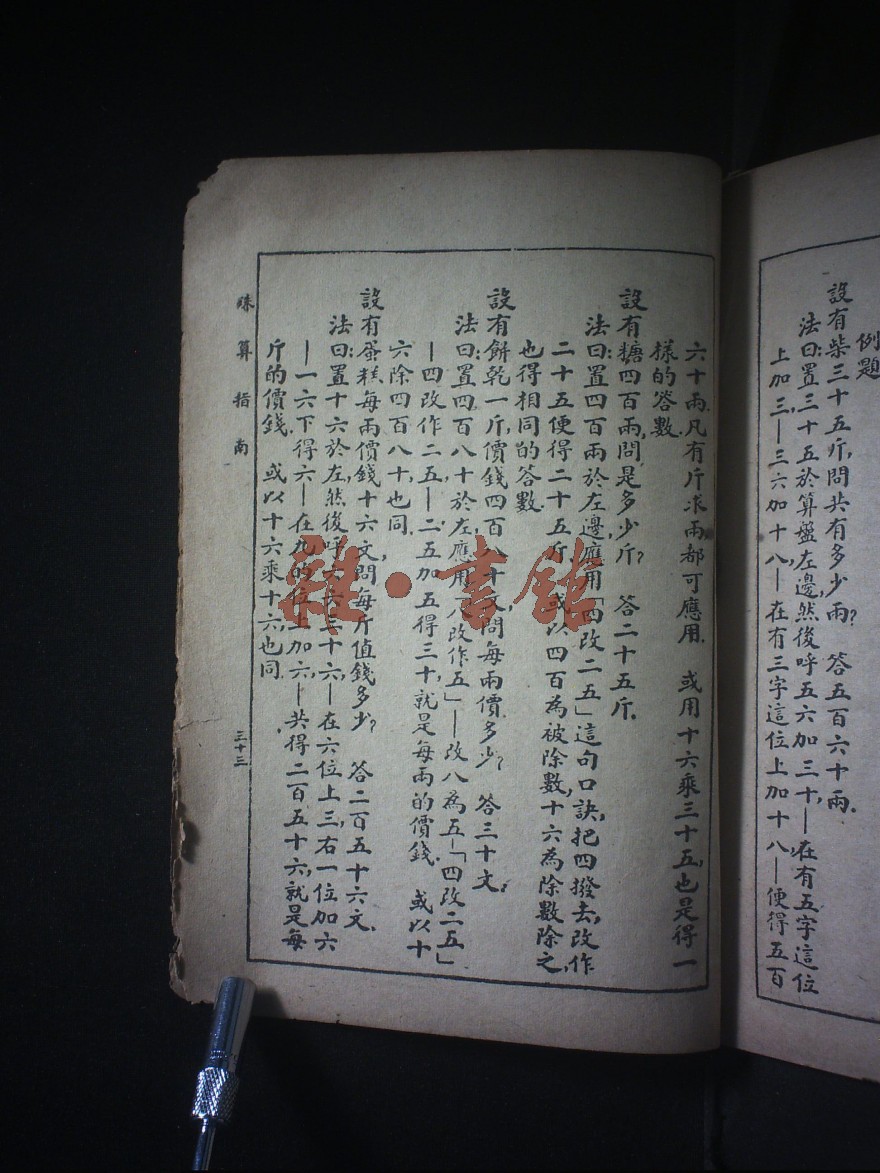 例題
設有柴三十五斤,問共有多少兩?　答五百六十兩.
法曰:置三十五於算盤左邊,然後呼五六加三十,—在有五字這位
上加三—三六加十八—在有三字這位上加十八—便得五百
六十兩.凡有斤求兩都可應用.　或用十六乘三十五,也是得一
樣的答數.
設有糖四百兩,問是多少斤?　答二十五斤.
法曰:置四百兩於左邊,應用「四改二五」這句口訣,把四撥去,改作
二十五便得二十五斤.　或以四百為被除數,十六為除數除之,
也得相同的答數.
設有餅乾一斤,價錢四百八十文,問每兩價多少?　答三十文.
法曰:置四百八十於左,應用「八改作五」—改八為五—「四改二五」
—四改作二五—二五加五得三十,就是每兩的價錢.　或以十
六除四百八十,也同.
設有蛋糕每兩價錢十六文,問每斤值錢多少?　答二百五十六文.
法曰:置十六於左,然後呼六六三十六,—在六位上三,右一位加六
—一六下得六—在九的位上加六,—共得二百五十六,就是每
斤的價錢.　或以十六乘十六,也同.
珠算指南
三十三
雜·書館